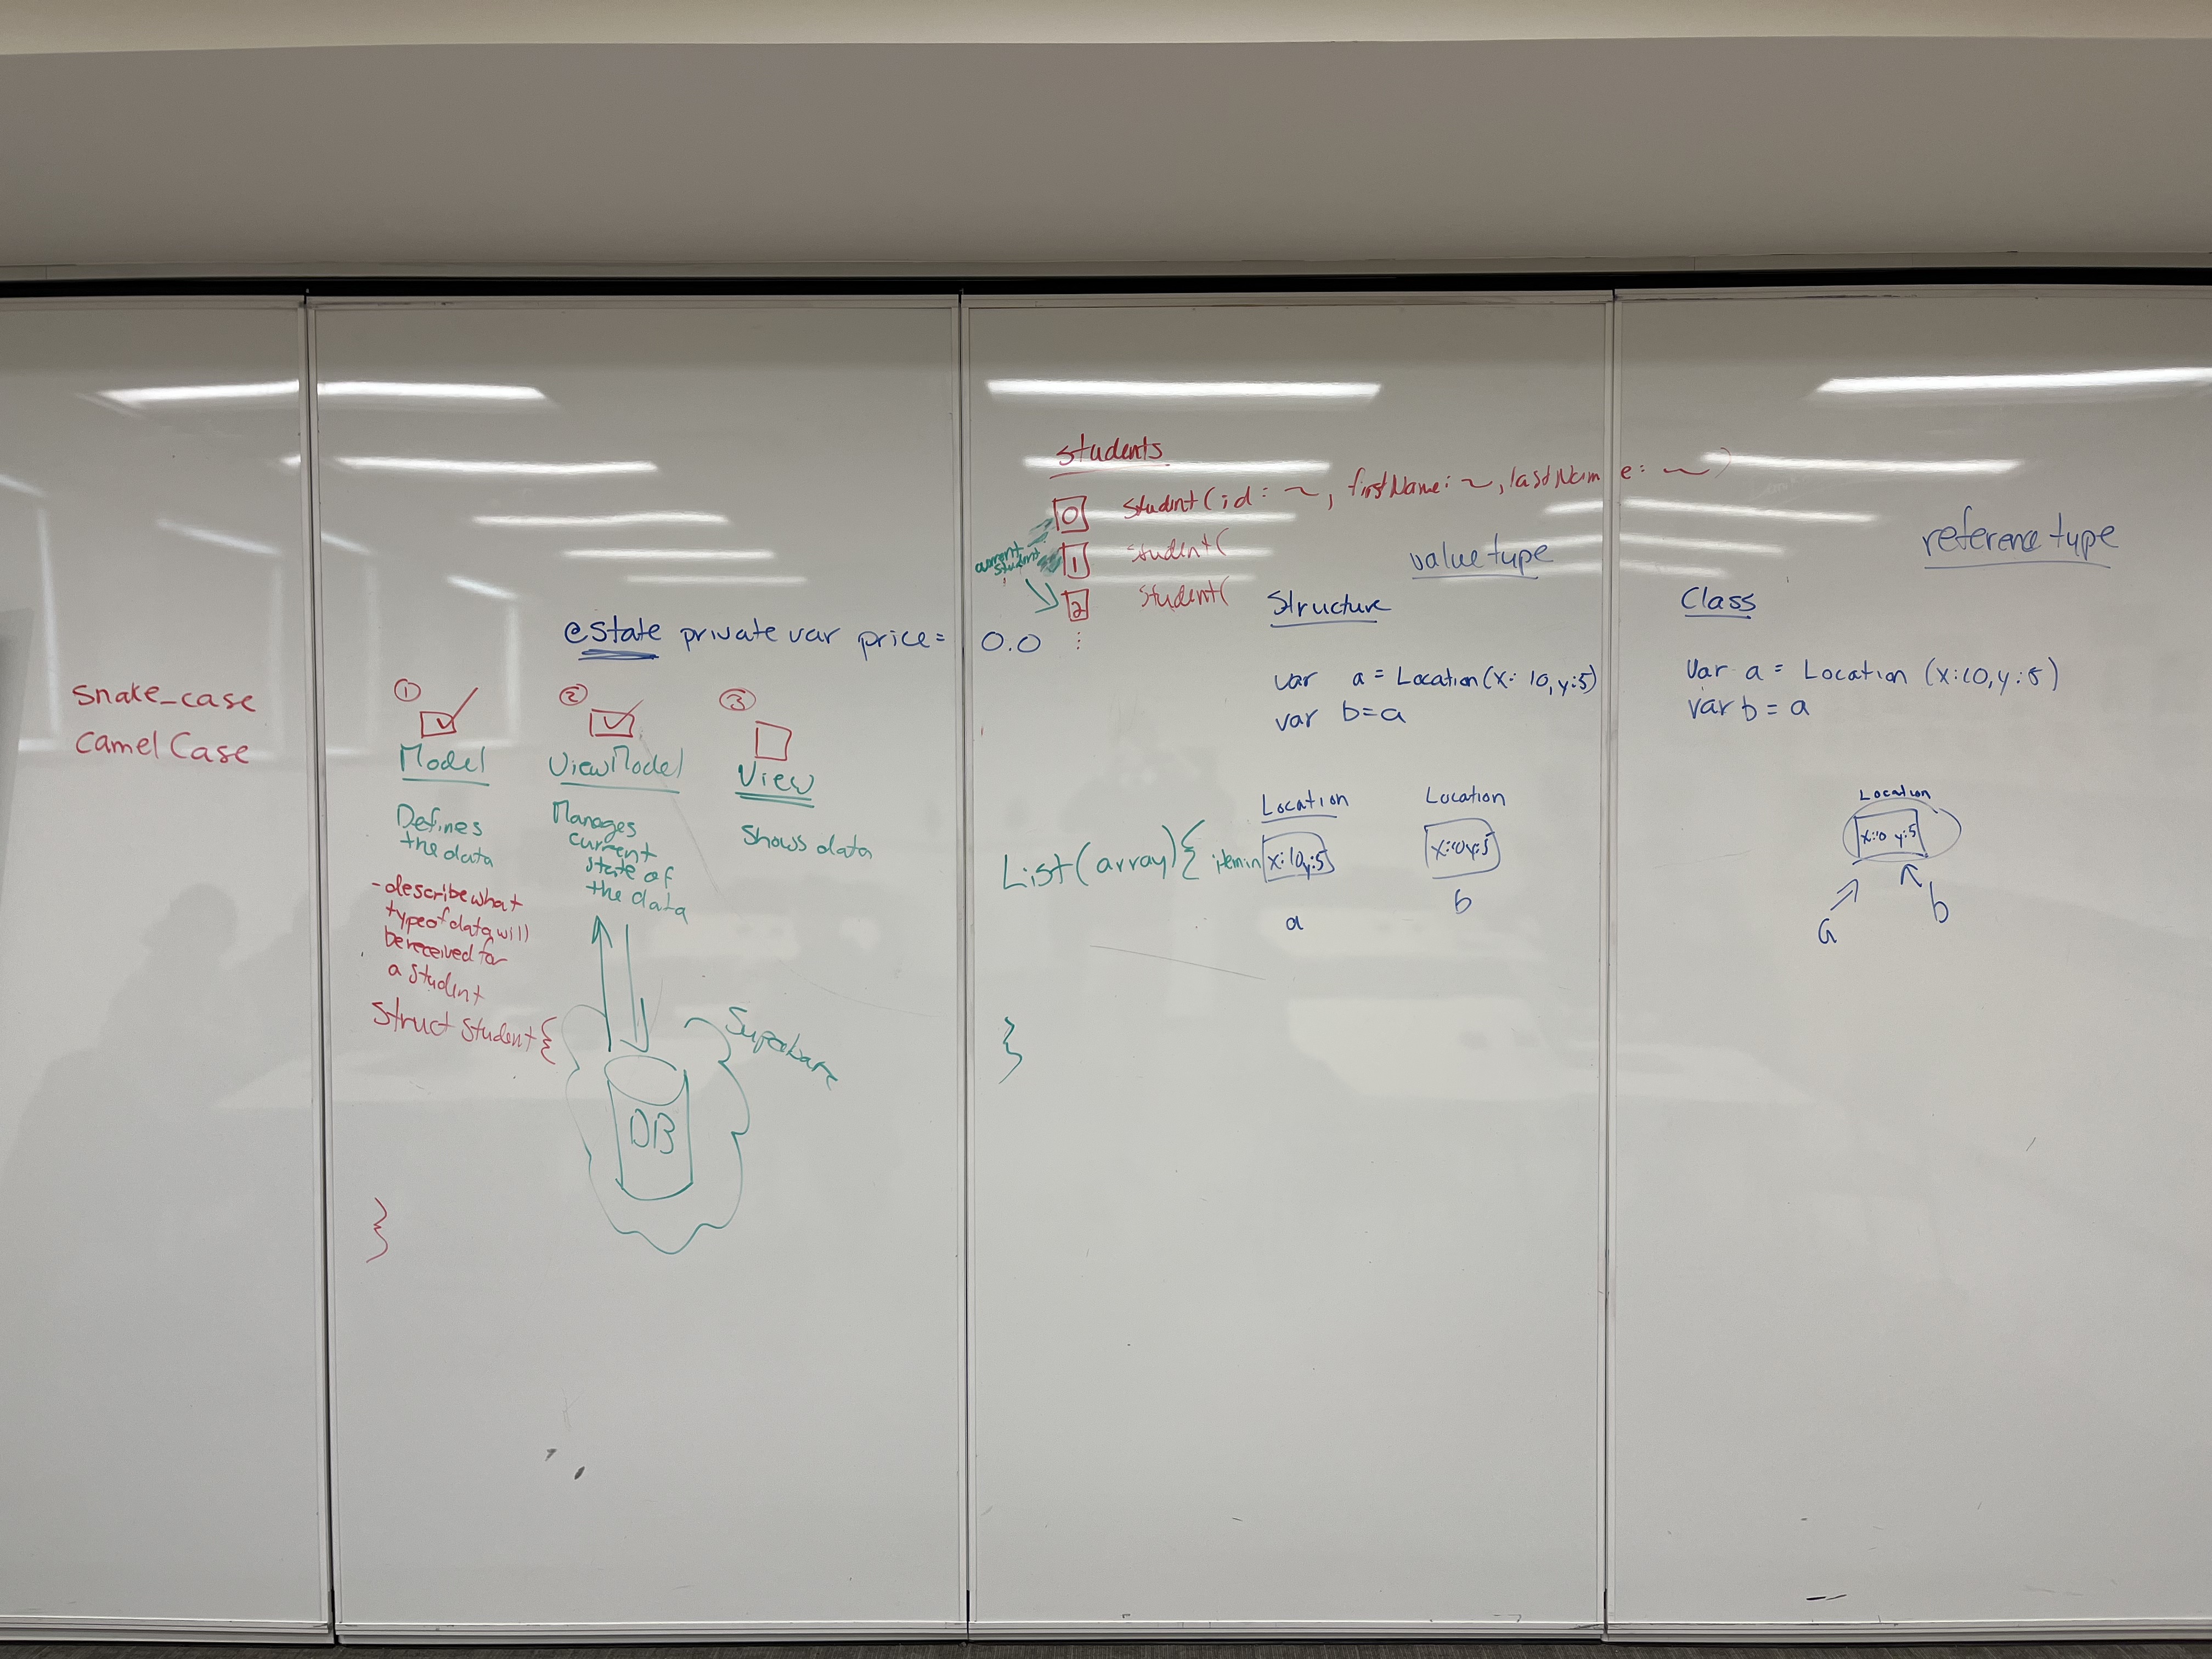 snake_case
camelCase
@State private var price = 0.0
①
Model
Defines
the data
- describe what
type of data will
be received for
a student
struct Student {
}
②
ViewModel
Manages
current
state of
the data
DB
Supabase
③
View
Shows data
students
0 Student(id: ~, firstName: ~, lastName: ~)
1 Student(
2 Student(
⋮
current
student
List(array){ item in
}
value type
Structure
var a = Location(x: 10, y:5)
var b=a
Location
x:10,y:5
a
Location
x:10 y:5
b
reference type
Class
var a = Location (x:10, y:5)
var b = a
Location
x:10 y:5
a
b